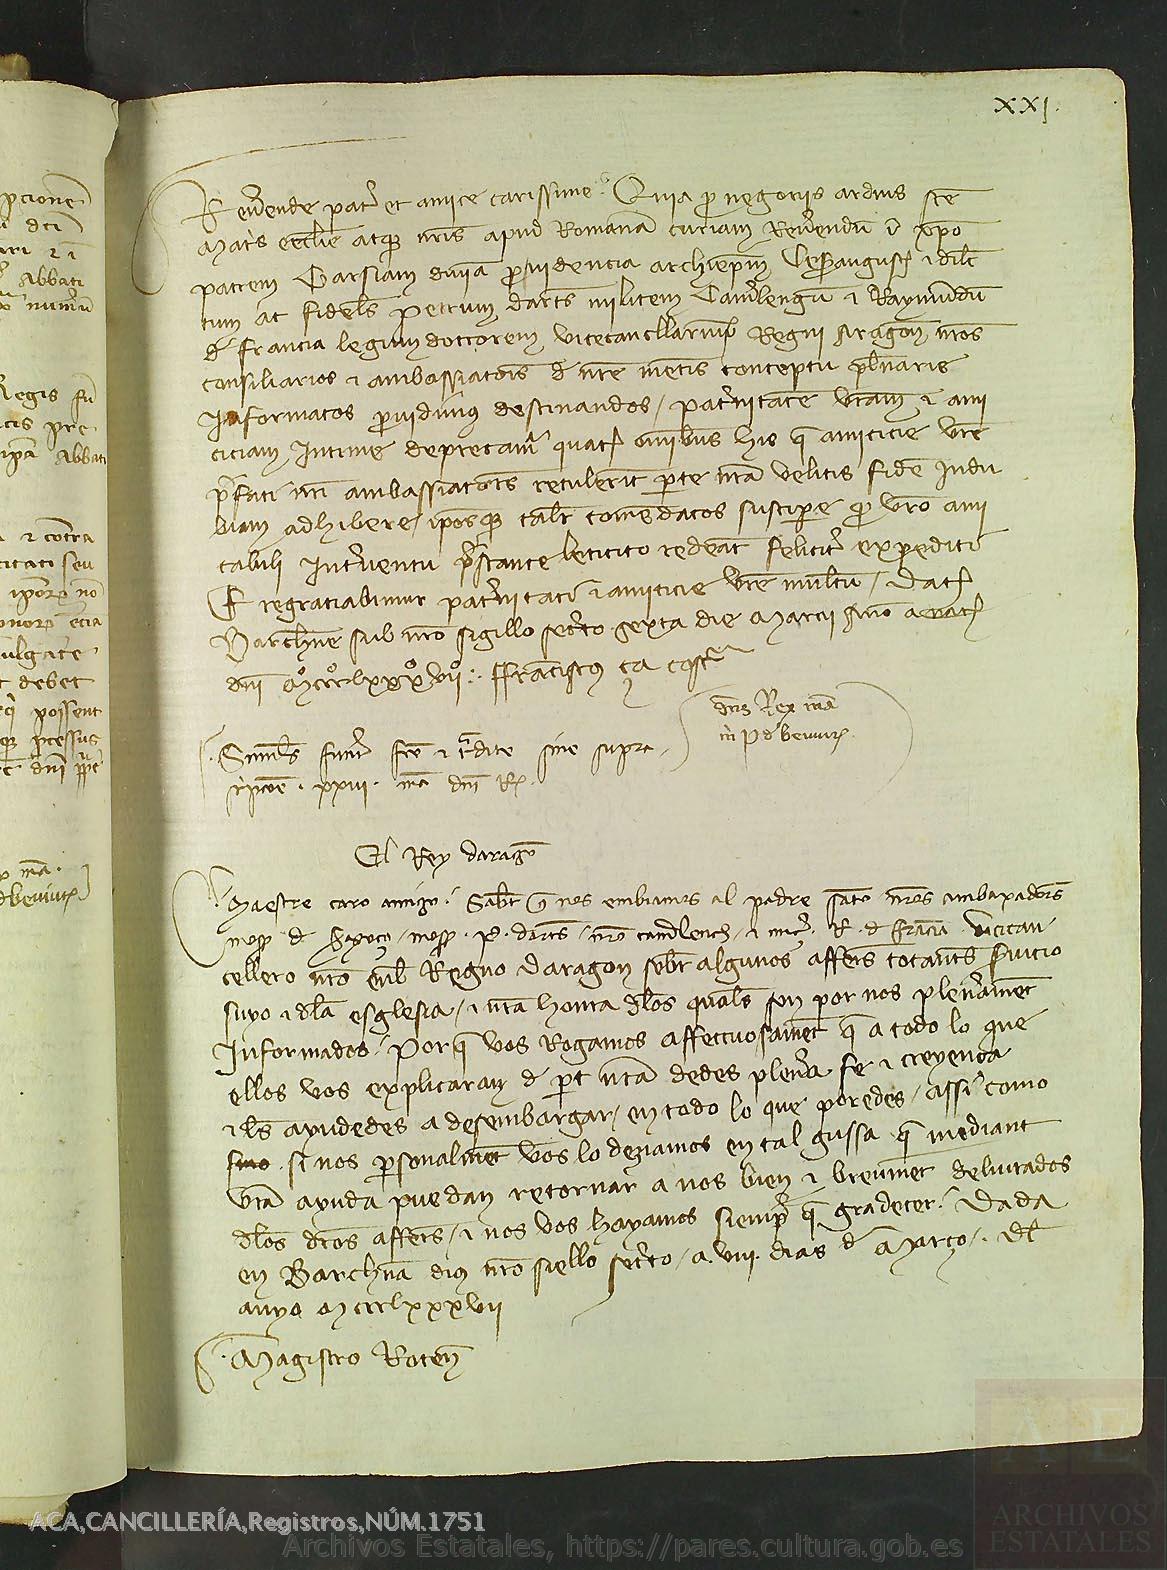 XXI
Reuerende pater et amice carissime Quia pro negociis arduis sce
matris ecclie atque nris apud Romanam curiam Reuerendum in xpo
patrem Garsiam diuina prouidencia archiepm Cesaraugust et dilc
tum ac fideles Petrum darters militem Camerlengum et Raymundum
de Francia legum doctorem vicecancellarium Regni Aragon nros
consiliarios et ambassiatores de nre mentis conceptu plenarie
Informatos prouidimus destinandos / paternitatem vram et ami
ciciam Intime deprecamur quatenus omnibus hiis que amicicie vre
prefati nri ambassiatores retulerint parte nra velitis fidem Indu
biam adhibere / ipsosque taliter comendatos suscipere pro vro ami
cabili Interuentu prestante leticito redeant feliciter expediti
Et regraciabimur paternitati et amicicie vre multum / Dat
Barchne sub nro sigillo secreto sexta die Marcii Anno a nat
dni Mccclxxxvii Ffranciscus ça cost
dns Rex ma
m P de beuiure
Similes fuert fce et tradite sine supra
scripcoe xxiii ma dni R
El Rey daragon
Maestre caro amigo Sabet que nos embiamos al padre santo nros ambaxadores
mossen de Saragoça / mossen P. darters / nro camarlench / et micer R. de Francia vicican
cellero nro enl Regno daragon sobre algunos afferes tocantes seruicio
suyo et dla esglesia / et nra honra dlos quales son por nos plenerament
Informados Porque vos Rogamos affectuosament que a todo lo que
ellos vos explicaran de part nra dedes plenera fe et creyença
et les ayudedes a desembargar / en todo lo que poredes / assi como
si nos personalment vos lo deziamos en tal guissa que mediant
vra ayuda puedan retornar a nos bien et breument deliurados
dlos dtos afferes / et nos vos hayamos siempre que gradecer Dada
en Barchna dius nro siello secreto / a. viii. dias de Março / Dl
anyo Mccclxxxvii
Magistro Roten
ACA,CANCILLERÍA,Registros,NÚM.1751
Archivos Estatales, https://pares.cultura.gob.es
AE
ARCHIVOS
ESTATALES